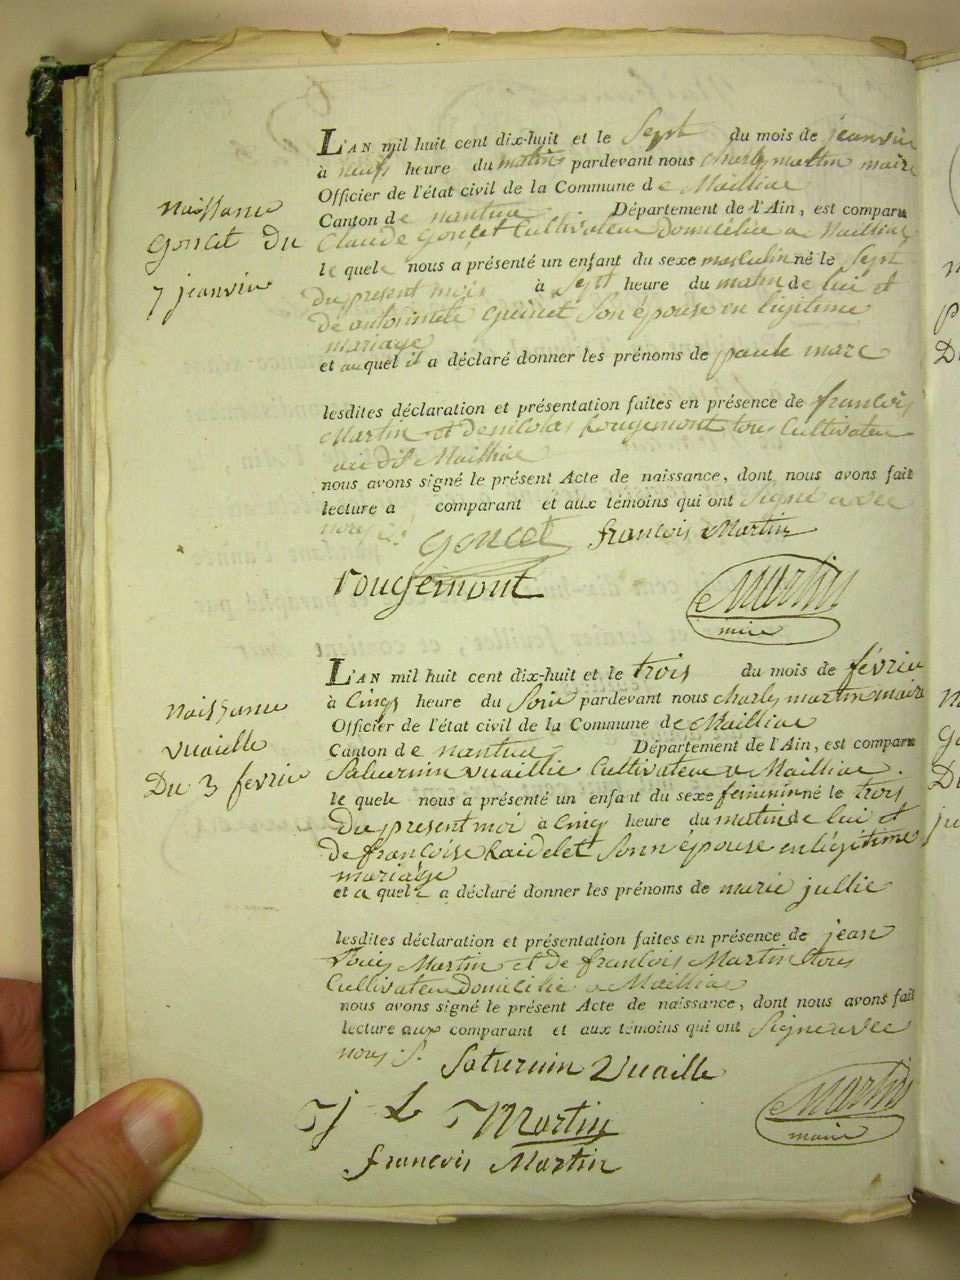 L'AN mil huit cent dix-huit et le Sept du mois de jeanvie
à neufs heure du matins pardevant nous charly martin maire
Officier de l'état civil de la Commune de Mailliac
Naissance
Canton de nantua Département de l'Ain, est comparu
Goncet Du
Claude Goncet Cultivateu Domicilie a Mailliac
7 jeanvie
le quele nous a présenté un enfant du sexe masculin né le Sept
Du present mois à Sept heure du matin de lui et
De antoinette Son épouse en légitime
mariage
et auquel il a déclaré donner les prénoms de paule marc
lesdites déclaration et présentation faites en présence de francois
Martin et de nicolas Rougemont tous Cultivateu
au dit Mailliac
nous avons signé le présent Acte de naissance, dont nous avons fait
lecture a comparant et aux témoins qui ont Signe avec
nous
Goncet francois Martin
rougemont
Martin
mire
L'AN mil huit cent dix-huit et le trois du mois de févrie
à Cinqs heure du Soir pardevant nous charly martin maire
Naissance
Officier de l'état civil de la Commune de Mailliac
vuaille
Canton de nantua Département de l'Ain, est comparu
Du 3 févrie
Saturnin vuaillie Cultivateu a Mailliac.
le quele nous a présenté un enfant du sexe feminin né le trois
Du present moi à Cinq heure du matin de lui et
De françoise Raidelet Sonn épouse en légitime
mariaige
et a quel a déclaré donner les prénoms de marie jullie
lesdites déclaration et présentation faites en présence de jean
Louis Martin et de francois Martin tous
Cultivateu Domicilie a Mailliac
nous avons signé le présent Acte de naissance, dont nous avons fait
lecture aux comparant et aux témoins qui ont Signe avec
nous S.
Saturnin Vuaille
J L Martin
Martin
maire
francois Martin